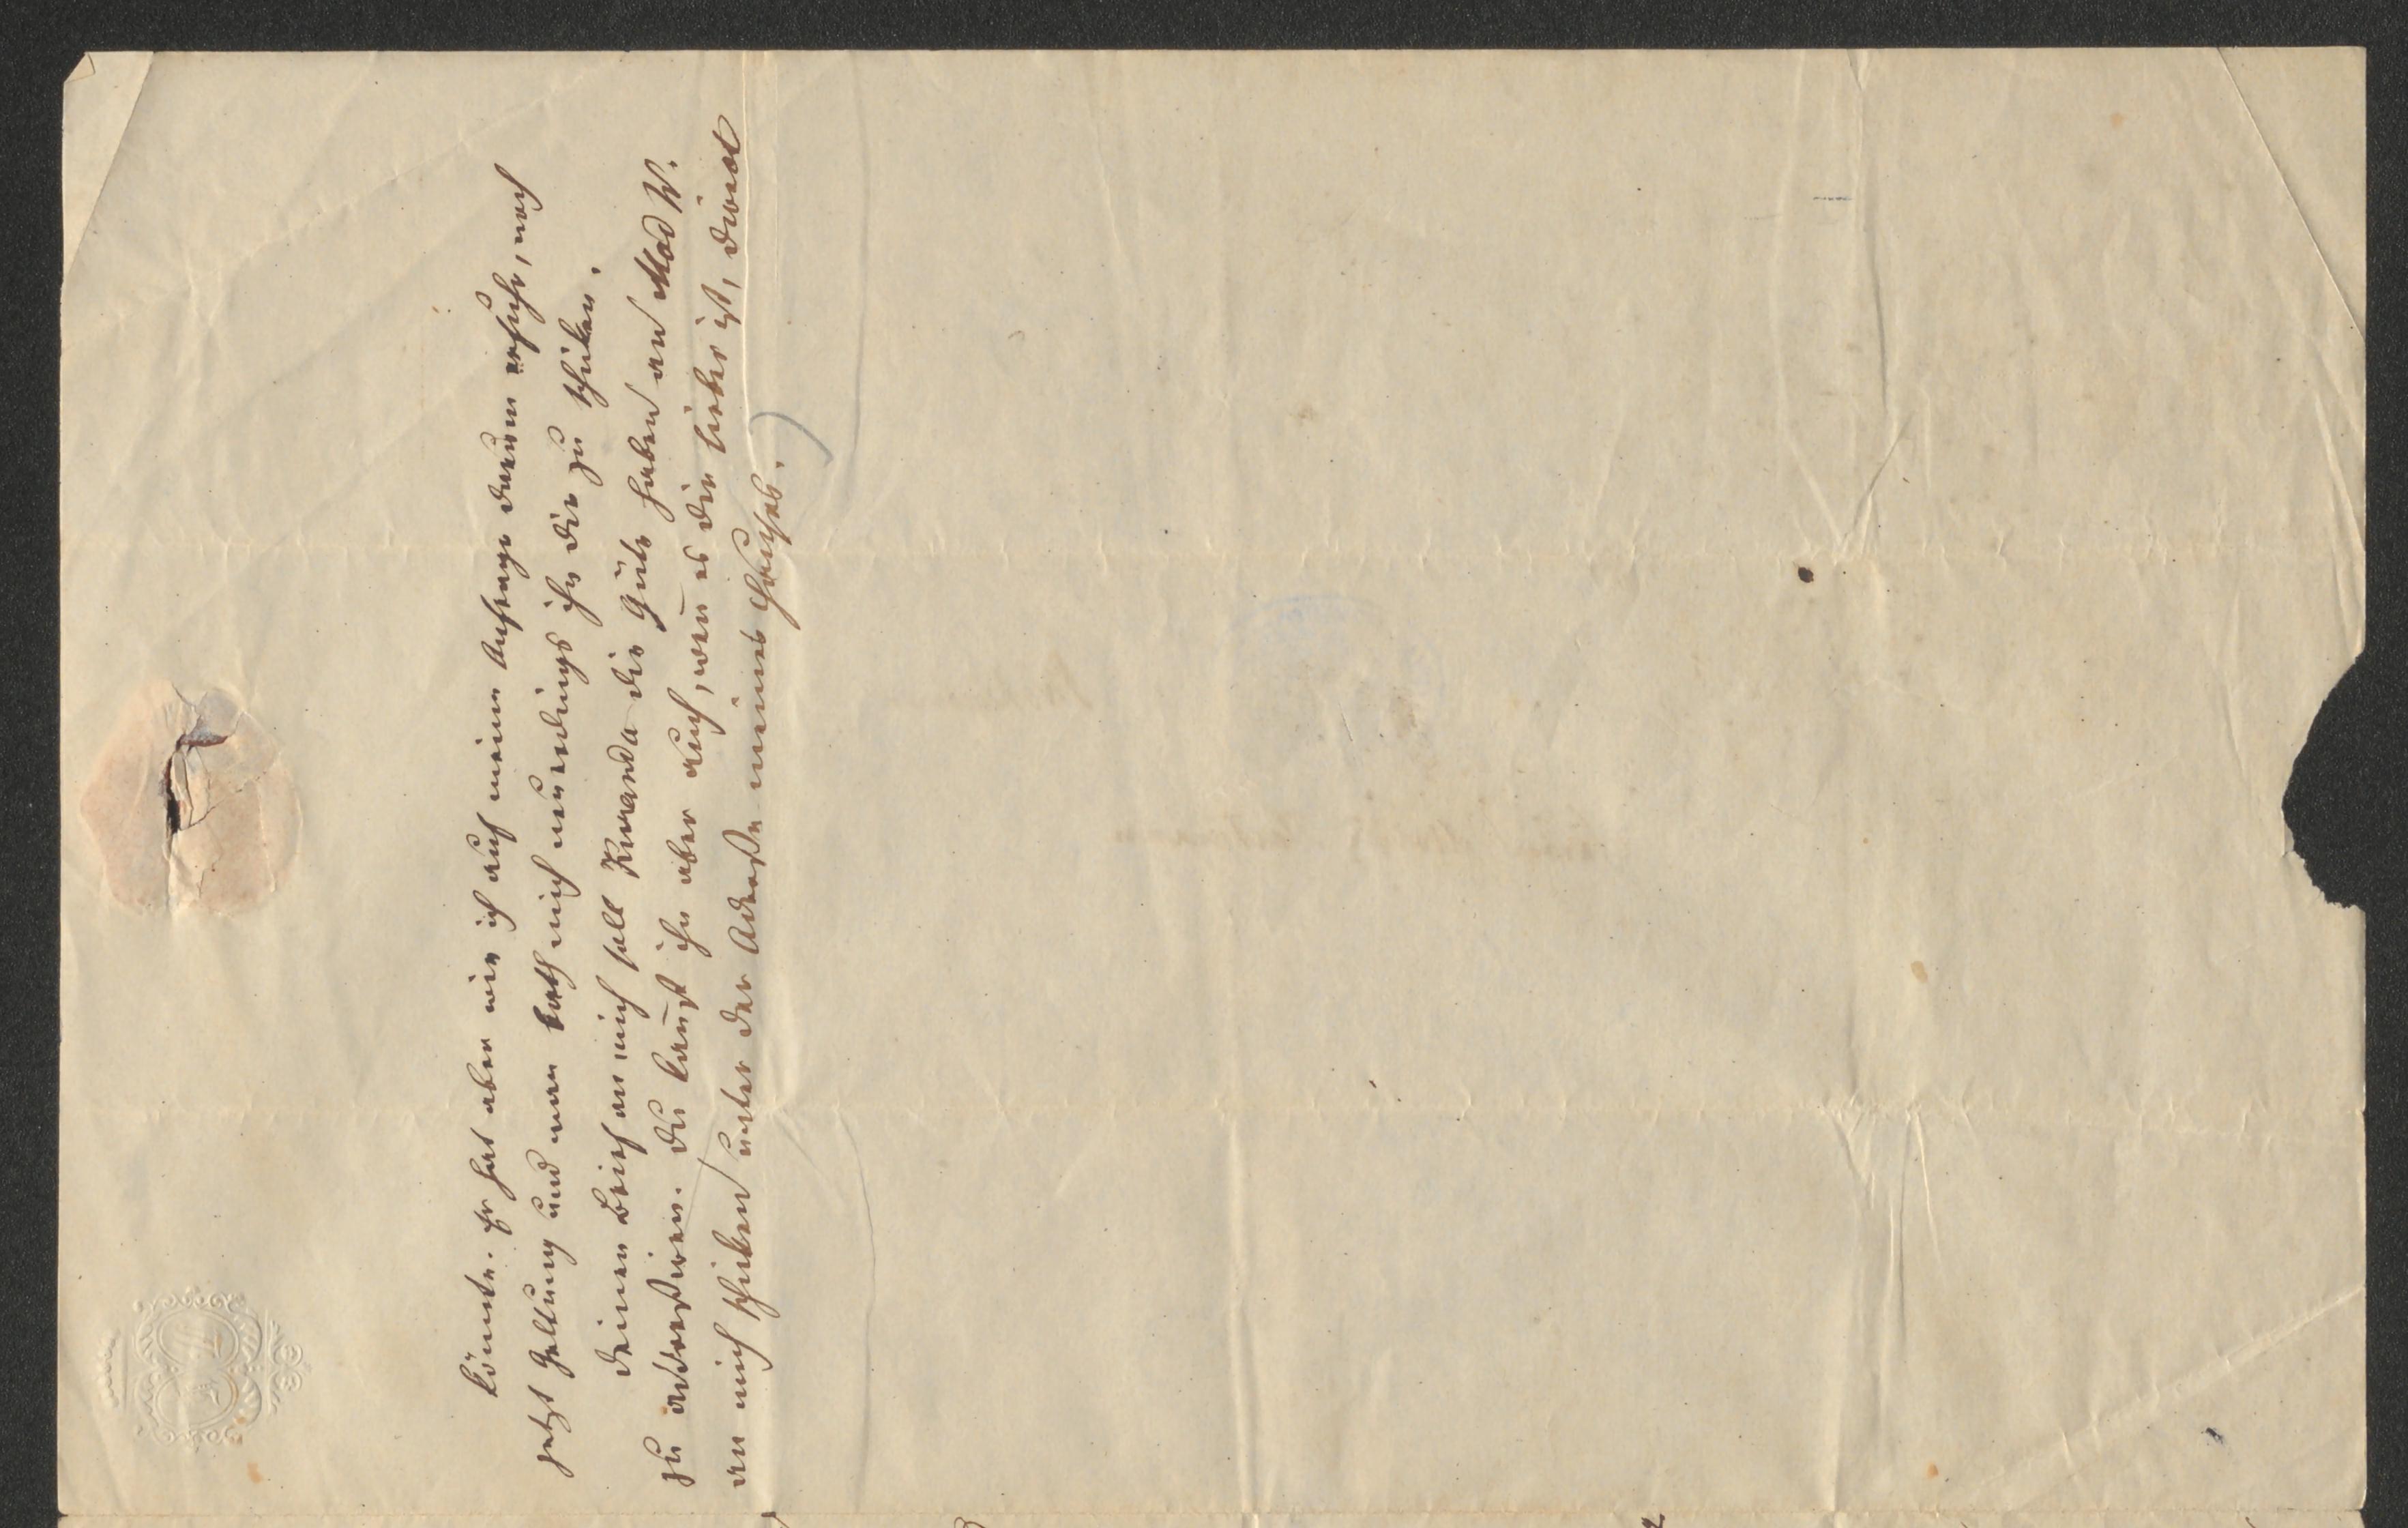 könnte. Er hat aber wie ich auf meine Anfrage darum erfuhr, noch
jetzt Geltung und man bath mich neuerdings ihn dir zu schicken.
Deinen Brief an mich soll Kuranda die Güte haben an Mad W.
zu adressiren. Du kan̄st ihn aber auch, wen̄ es dir lieber ist, direct
an mich schicken unter der Adresse meines Hauses.